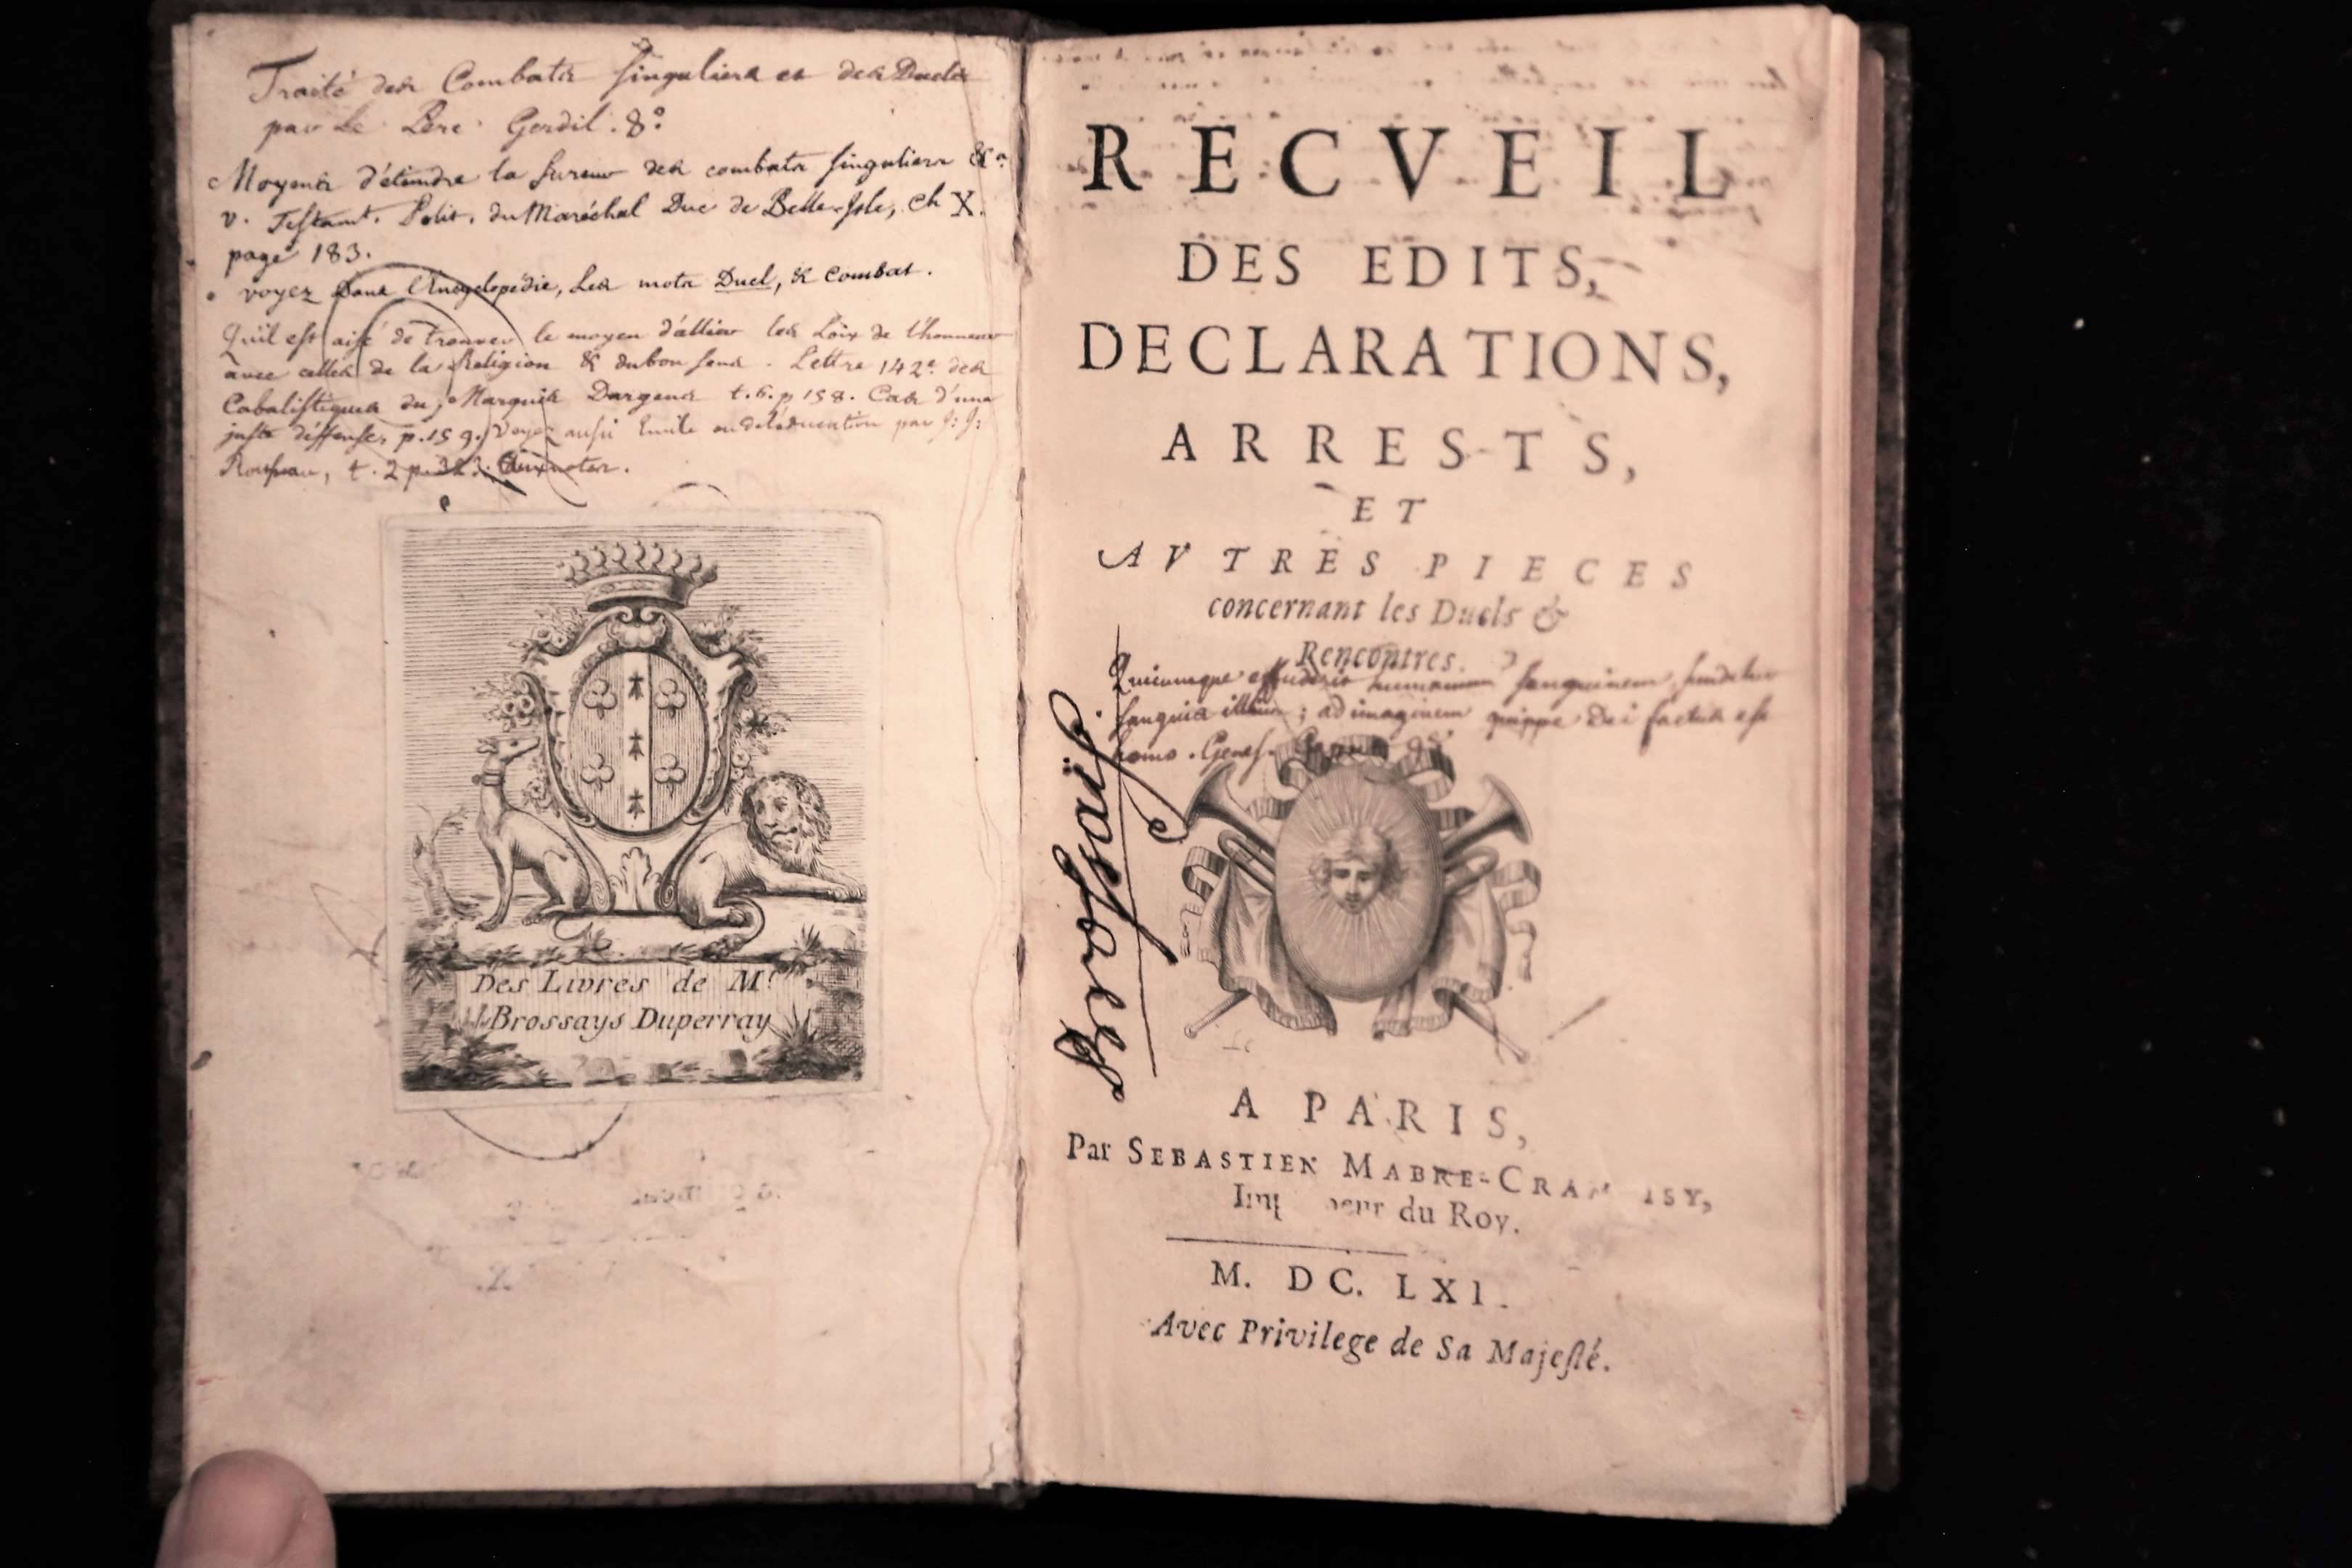 Traité des Combats singuliers et des Duels
par Le Pere Gerdil. 8°.
Moyens d'éteindre la fureur des combats singuliers &c.
v. Testamt. Polit. du Maréchal Duc de Belle-Isle, ch X.
page 183.
voyez Dans l'Encyclopédie, Les mots Duel, & Combat.
Qu'il est aisé de trouver le moyen d'allier les Loix de l'honneur
avec celles de la Religion & du bon sens. Lettre 142e. des
Cabalistiques du Marquis Dargens t. 6. p 158. Cas d'une
juste déffense, p. 159. Voyez aussi Emile ou de l'éducation par J: J:
Rousseau, t. 2 p. aux notes.
Des Livres de Mr.
Brossays Duperray
RECVEIL
DES EDITS,
DECLARATIONS,
ARRESTS,
ET
AVTRES PIECES
concernant les Duels &
Rencontres.
Quicumque effuderit humanum sanguinem fundetur
sanguis illius; ad imaginem quippe Dei factus est
homo. Genes.
Brossays
A PARIS,
Par SEBASTIEN MABRE-CRAM ISY,
Imp eur du Roy.
M. DC. LXI.
Avec Privilege de Sa Majesté.